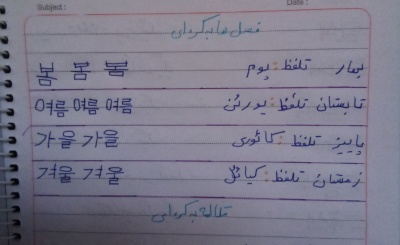 Subject : Date :
فصل ها به کره ای
بهار تلفظ: پوم 봄 봄 봄
تابستان تلفظ: یورئن 여름 여름 여름
پاییز تلفظ: کائوری 가을 가을
زمستان تلفظ: 겨울 겨울
به کره ای